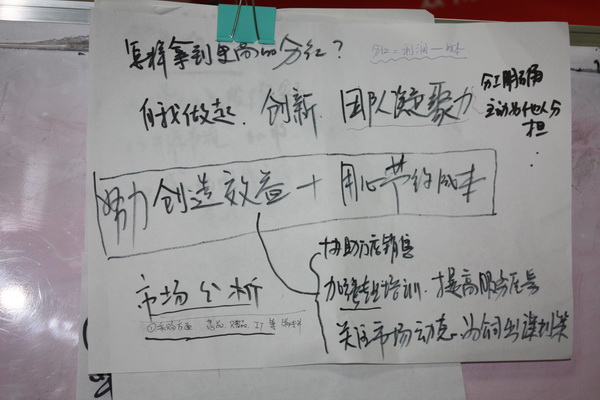 怎样拿到更高的分红？
分红=利润-成本
自我做起、创新、团队凝聚力
分工明确
主动为他人分
担
努力创造效益+用心节约成本
协助门店销售
市场分析
加强专业培训、提高服务质量
关注市场动态、为公司出谋划策
①采购方面